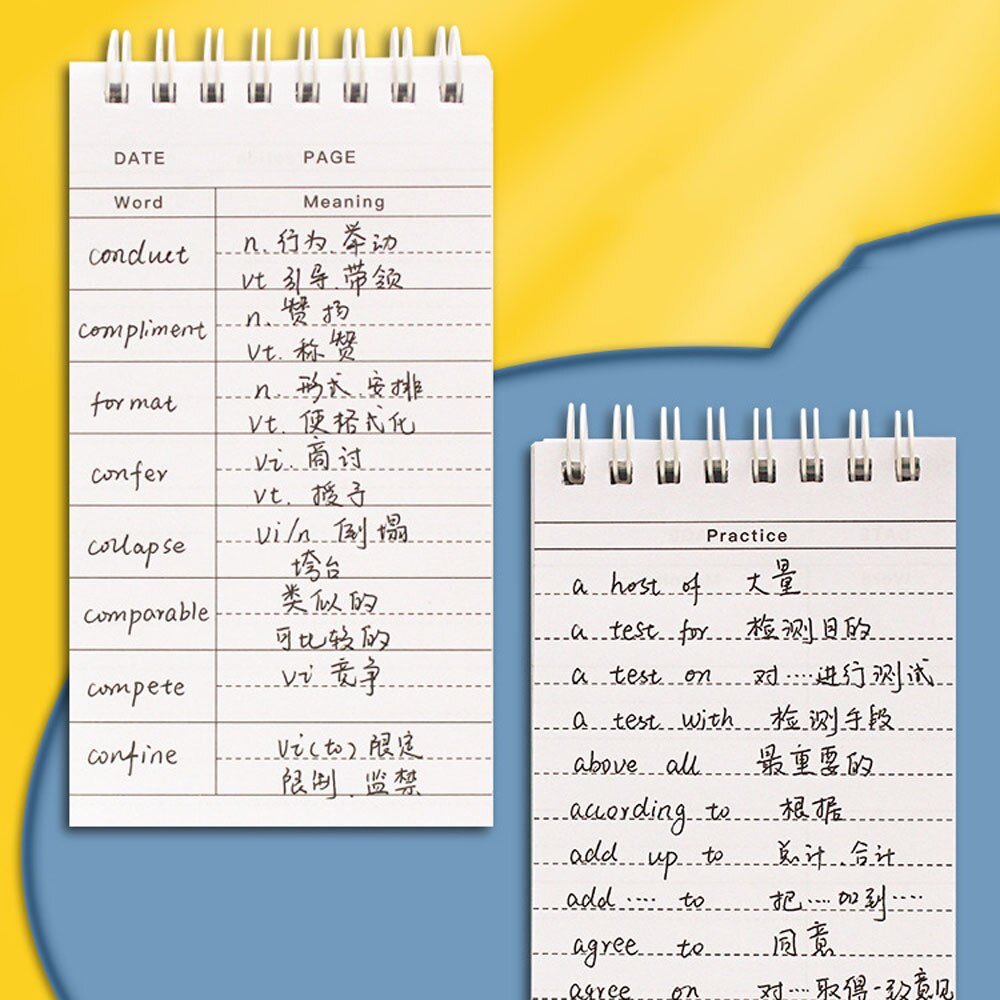 DATE PAGE
Word Meaning
conduct n. 行为.举动
vt 引导.带领
compliment n. 赞扬
vt. 称赞
format n. 形式.安排
vt. 使格式化
confer vi. 商讨
vt. 授予
collapse vi/n 倒塌
垮台
comparable 类似的
可比较的
compete vi 竞争
confine vi(to) 限定
限制.监禁
Practice
a host of 大量
a test for 检测目的
a test on 对····进行测试
a test with 检测手段
above all 最重要的
according to 根据
add up to 总计.合计
add ···· to 把····加到····
agree to 同意
agree on 对····取得一致意见